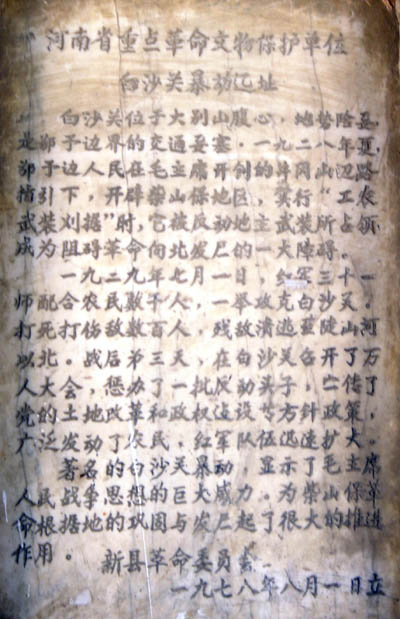 河南省重点革命文物保护单位
白沙关暴动遗址
白沙关位于大别山腹心，地势险要，
是鄂予边界的交通要塞，一九二八年夏，
鄂予边人民在毛主席开创的井冈山道路
指引下，开辟柴山保地区，实行“工农
武装刈据”时，它被反动地主武装所占领
成为阻碍革命向北发尸的一大障碍。
一九二九年七月一日 红军三十一
师配合农民数千人，一举攻克白沙关。
打死打伤敌数百人，残敌溃逃至陡山河
以北。战后弟三天，在白沙关召开了万
人大会，惩办了一批反动头子，宣传了
党的土地改革和政权建设等方针政策。
广泛发动了农民，红军队伍迅速扩大。
著名的白沙关暴动，显示了毛主席
人民战争思想的巨大威力。为柴山保革
命根据地的巩固与发尸起了很大的推进
作用。
新县革命委员会
一九七八年八月一日立